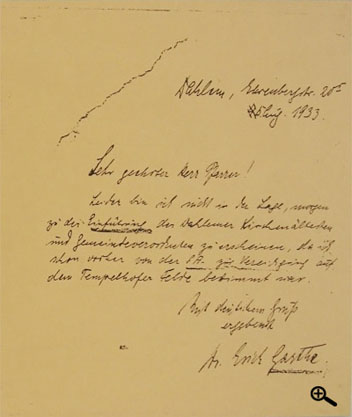 Dahlem, Ehrenbergstr. 20
Aug. 1933.
Sehr geehrter Herr Pfarrer!
Leider bin ich nicht in der Lage, morgen
zu der Einführung der Dahlemer Kirchenältesten
und Gemeindeverordneten zu erscheinen, da ich
schon vorher von der SA. zur auf
dem Tempelhofer Felde bestimmt war.
Mit deutschem Gruß
ergebenst
Dr. Erich